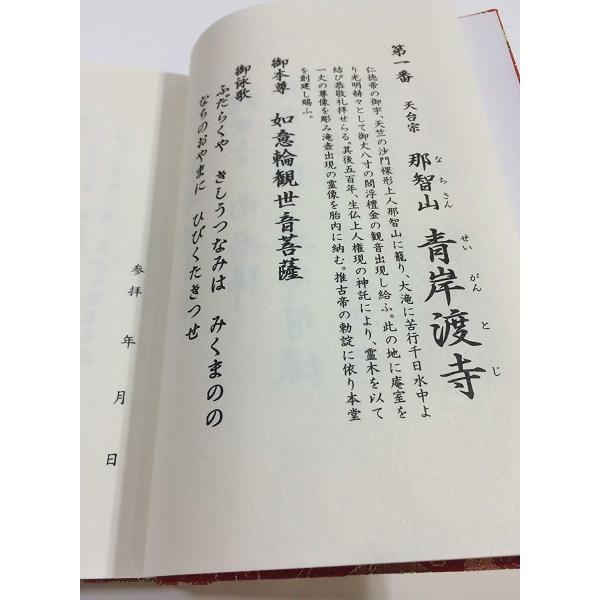 第一番　天台宗　那智山　青岸渡寺
なちさん　せいがんとじ
仁徳帝の御宇、天竺の沙門裸形上人那智山に籠り、大滝に苦行千日水中よ
り光明赫々として御丈八寸の閻浮檀金の観音出現し給ふ。此の地に庵室を
結び恭敬礼拝せらる。其後五百年、生仏上人権現の神託により、霊木を以て
一丈の尊像を彫み滝壺出現の霊像を胎内に納む。推古帝の勅諚に依り本堂
を創建し賜ふ。
御本尊　如意輪観世音菩薩
御詠歌
ふだらくや　きしうつなみは　みくまのの
なちのおやまに　ひびくたきつせ
参拝　年　月　日